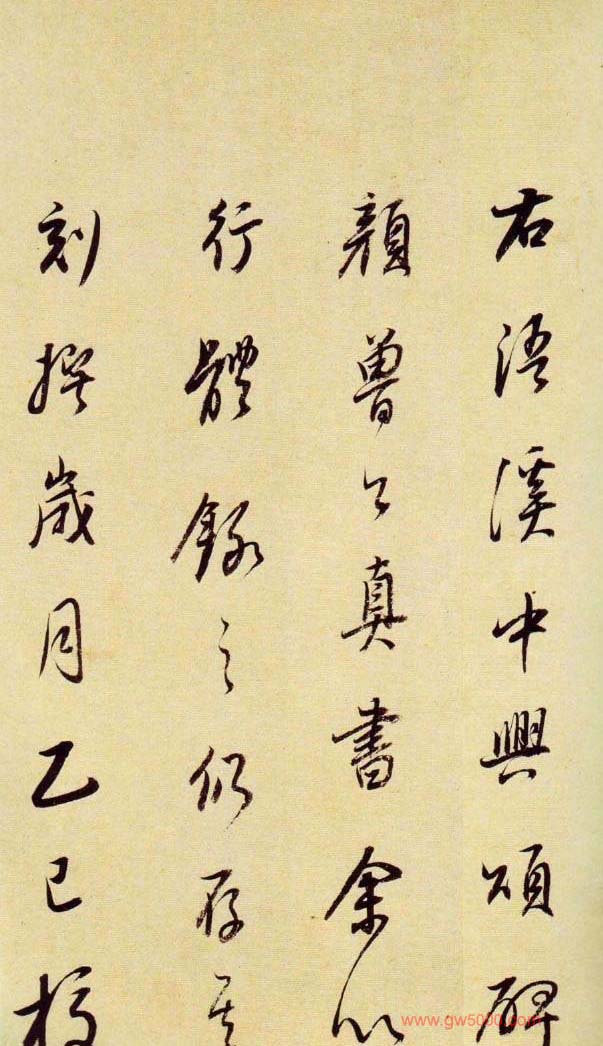 右浯溪中興頌碑
顏魯公真書余以
行體錄之仍存其
刻撰歲月乙巳橋
www.gw5000.com